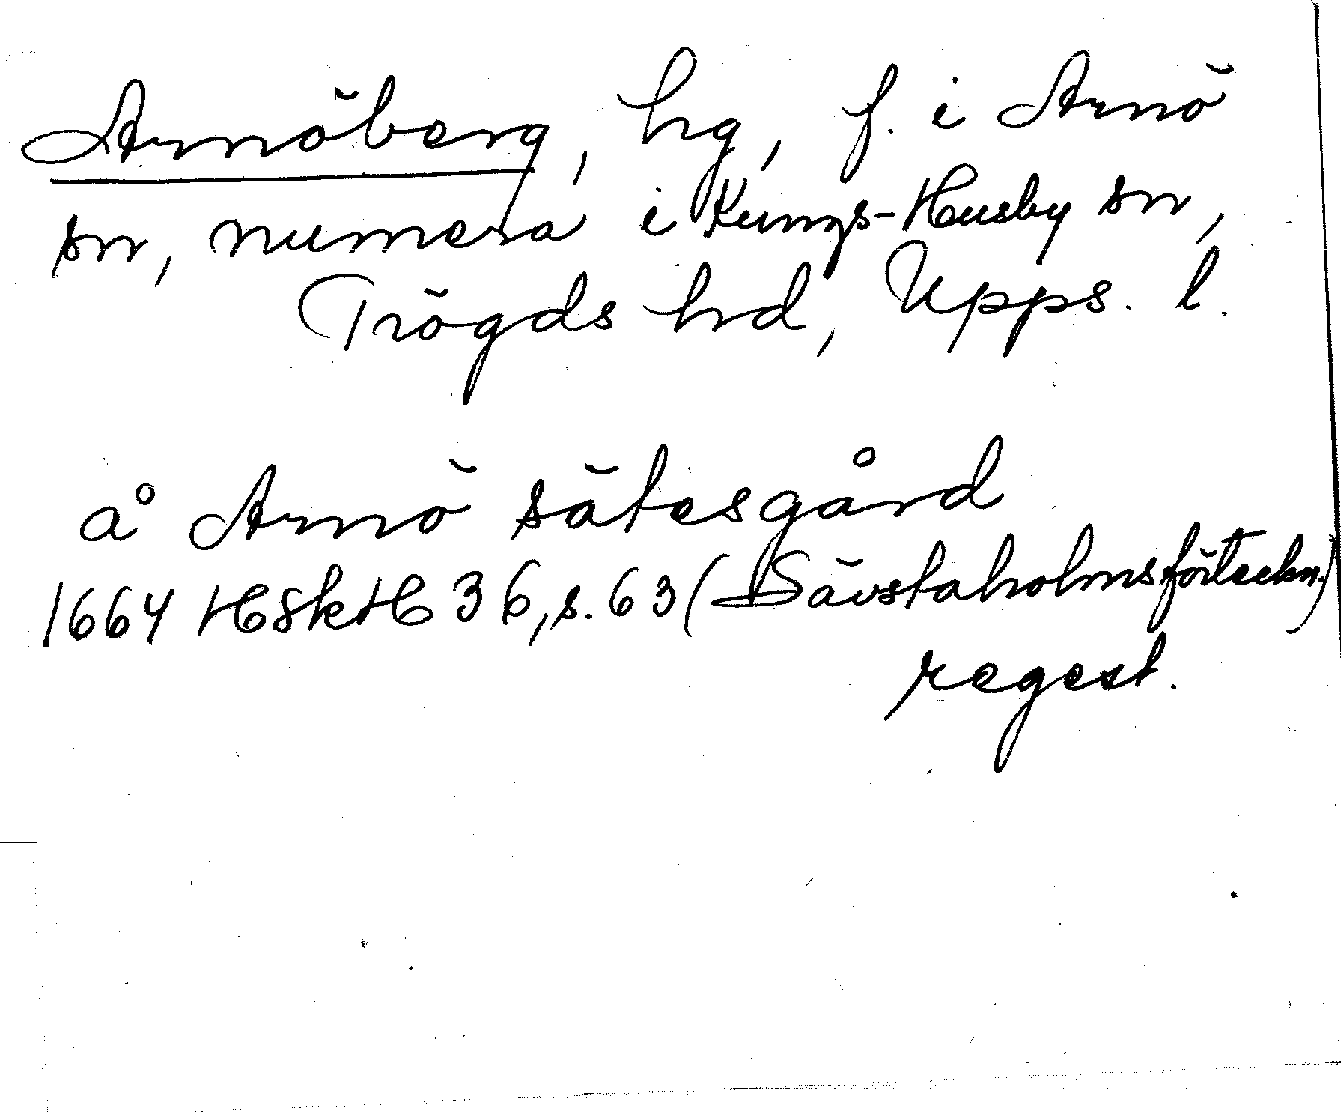 Arnöberg, hg, f. i Arnö
sn, numera i Kungs-Husby sn,
Trögds hd, Upps. l.
å Arnö sätesgård
1664 HSkH 36, s. 63 (Sävstaholmsförteckn.)
regest.